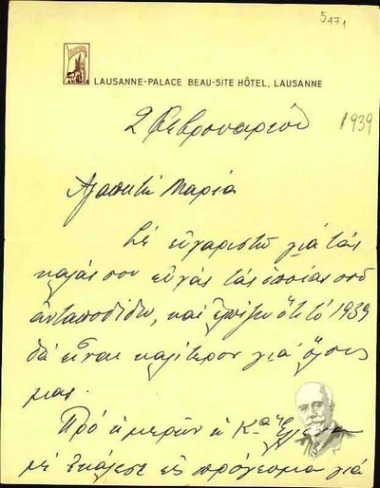 5471
LAUSANNE-PALACE BEAU-SITE HÔTEL, LAUSANNE
2 Φεβρουαρίου
1939
Αγαπητή Μαρία
Σέ εὐχαριστῶ γιά τάς
καλάς σου εὐχάς τάς ὁποίας σοῦ
ἀνταποδίδω, καί ἐλπίζω ὅτι τό 1939
θά εἶναι καλίτερον γιά ὅλους
μας.
Πρό ἡμερῶν ἡ Κα Ἑλένα
μέ ἐκάλεσε εἰς πρόγευμα γιά